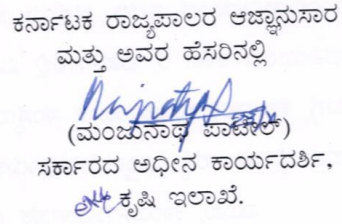 ಕರ್ನಾಟಕ ರಾಜ್ಯಪಾಲರ ಆಜ್ಞಾನುಸಾರ
ಮತ್ತು ಅವರ ಹೆಸರಿನಲ್ಲಿ
(ಮಂಜುನಾಥ ಪಾಟೀಲ್)
ಸರ್ಕಾರದ ಅಧೀನ ಕಾರ್ಯದರ್ಶಿ,
ಕೃಷಿ ಇಲಾಖೆ.